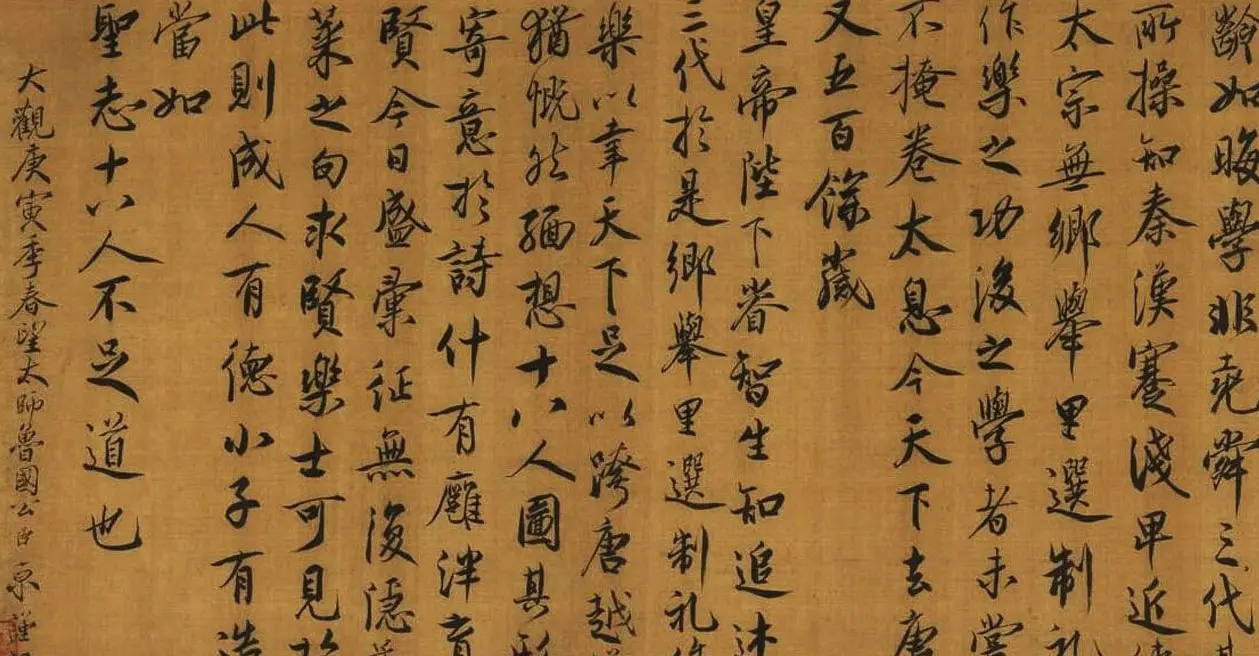 齡如晦學非堯舜三代
所操知秦漢蹇淺卑近
太宗無鄉舉里選制礼
作樂之功後之學者未嘗
不掩卷太息今天下去唐
又五百餘歲
皇帝陛下睿智生知追述
三代於是鄉舉里選制礼作
樂以幸天下足以跨唐越
猶慨然緬想十八人圖其形
寄意於詩什有廱泮育
賢今日盛彙征無復隱
萊之句求賢樂士可見於
此則成人有德小子有造
當如
聖志十八人不足道也
大觀庚寅季春望太師魯國公臣京謹